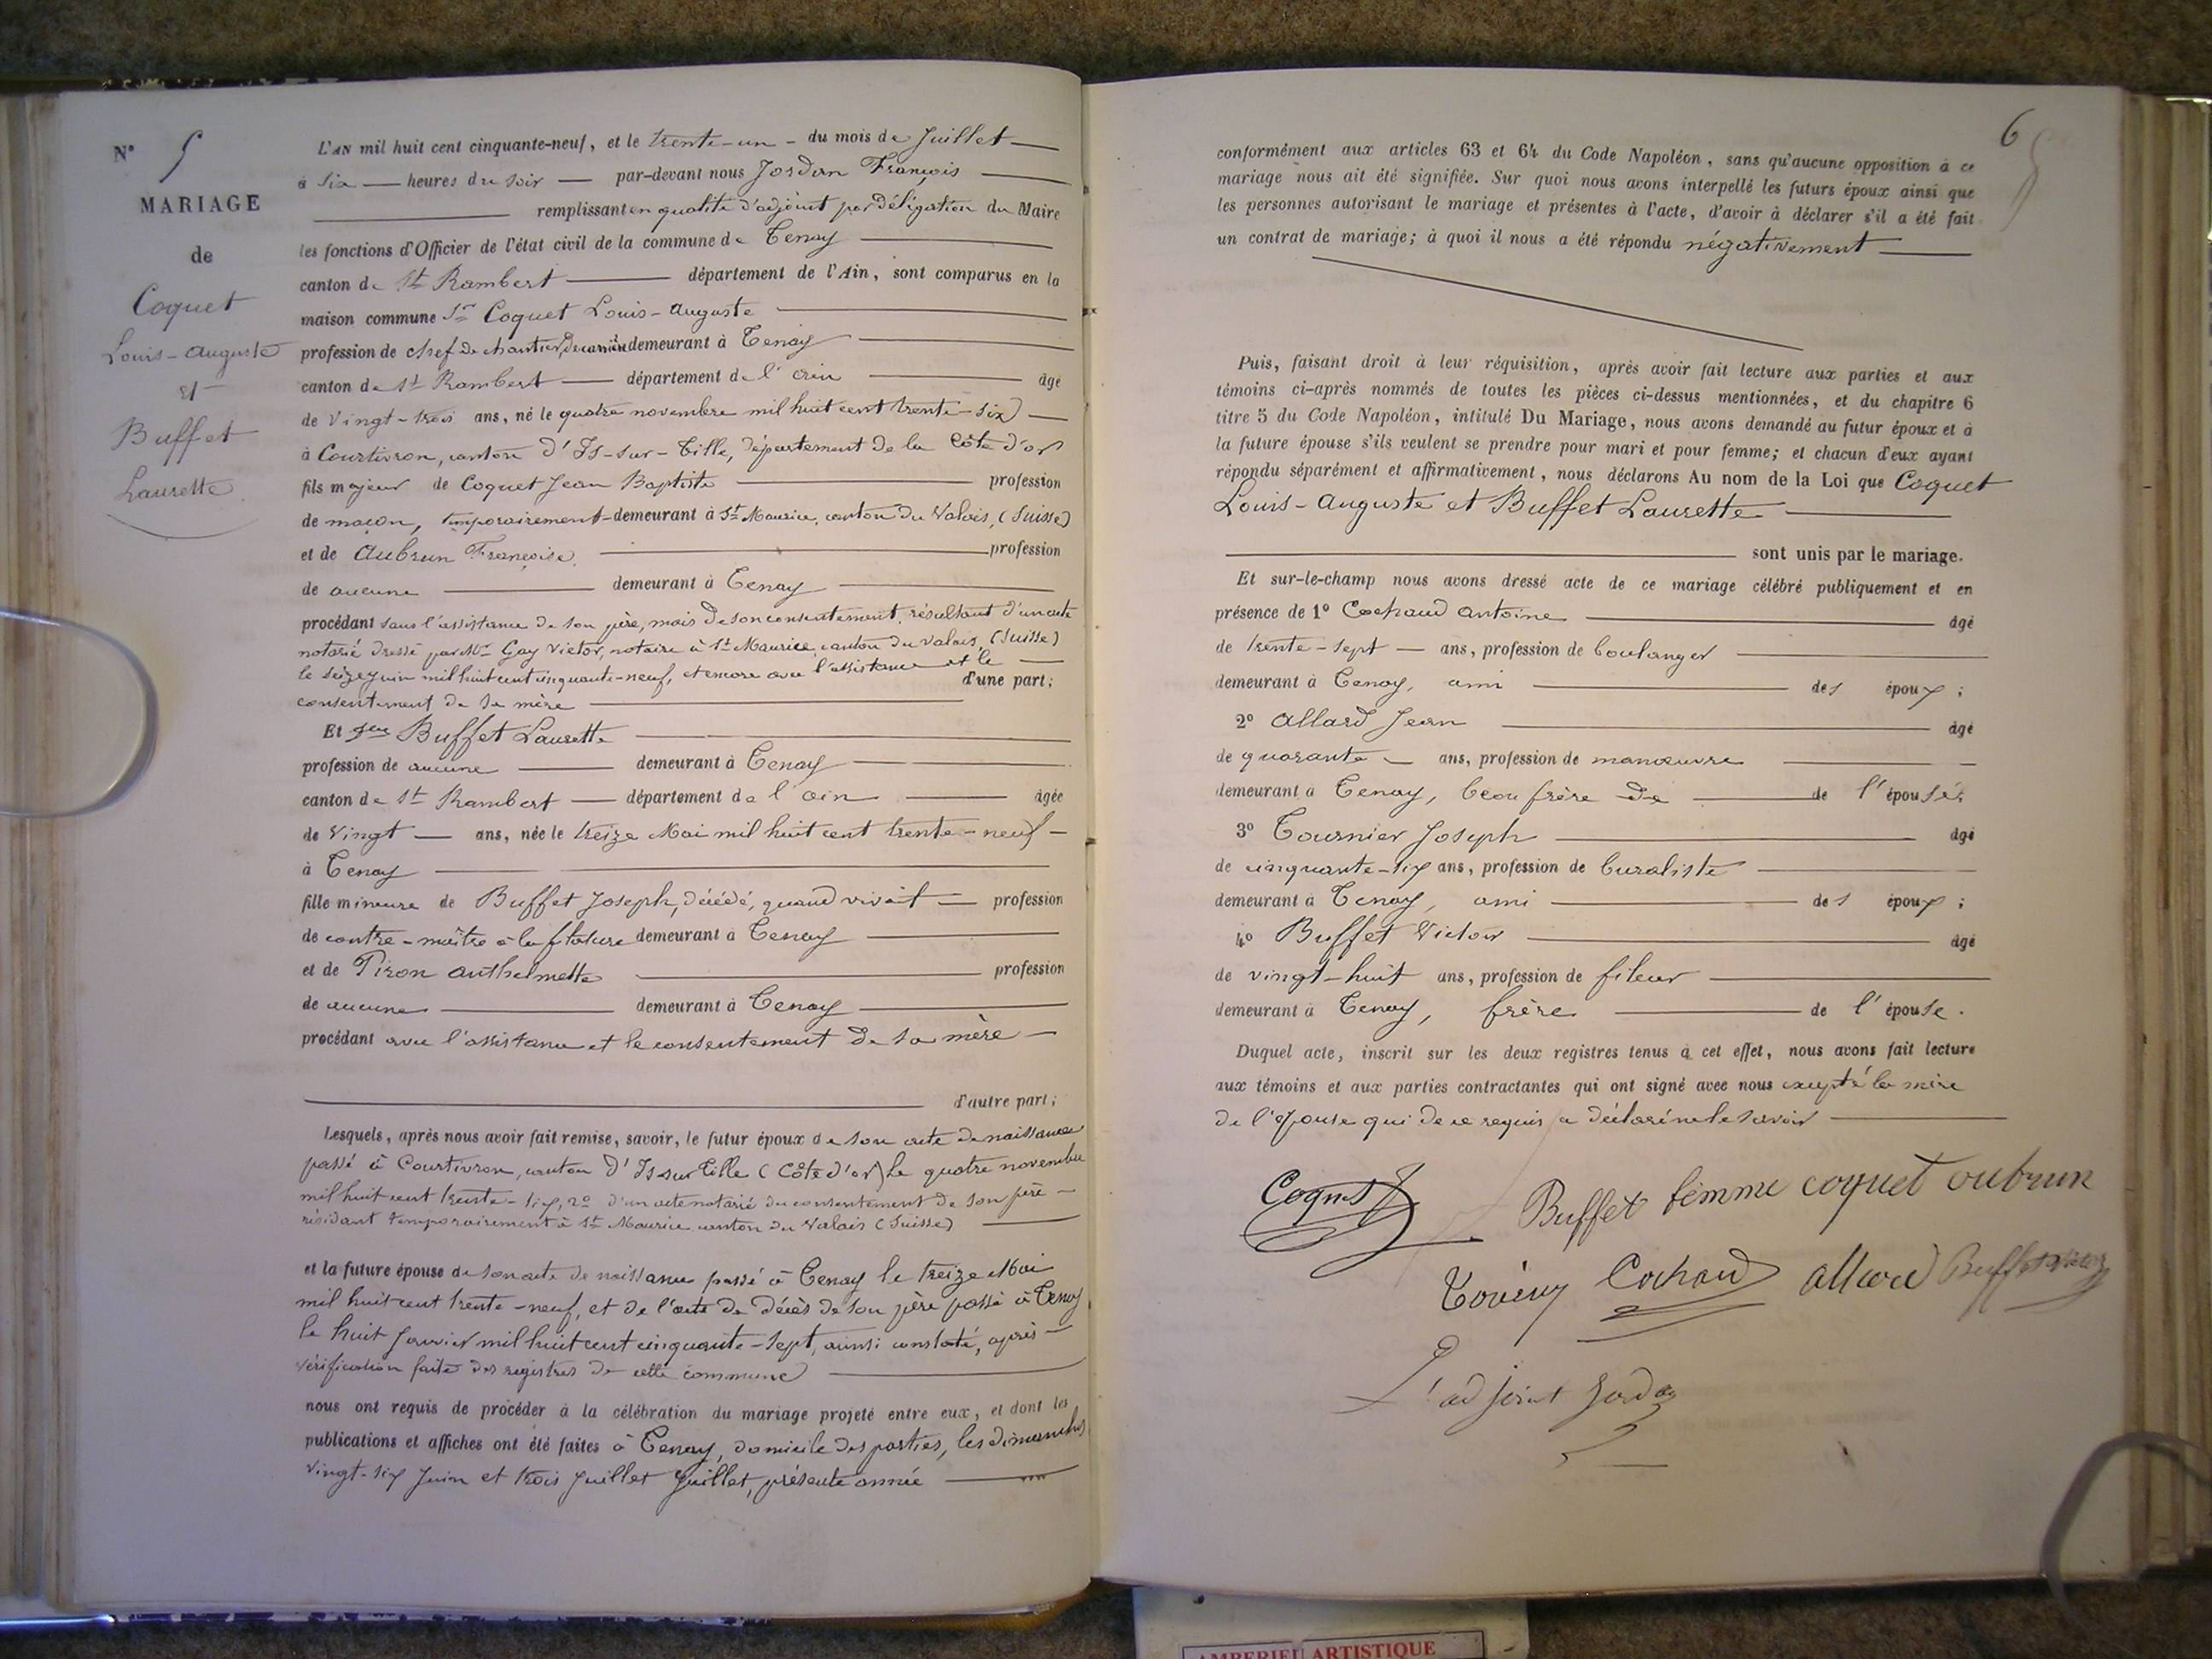 N° 5
MARIAGE
de
Coquet
Louis-Auguste
et
Buffet
Laurette
L'AN mil huit cent cinquante-neuf, et le trente-un - du mois de Juillet
à six heures du soir par-devant nous Jordan François
remplissant en qualité d'adjoint par délégation du Maire
les fonctions d'Officier de l'état civil de la commune de Tenay
canton de St Rambert département de l'Ain, sont comparus en la
maison commune Sr Coquet Louis-Auguste
profession de chef de chantier, de carrière demeurant à Tenay
canton de St Rambert département de l'ain âgé
de vingt-trois ans, né le quatre novembre mil huit cent trente-six
à Courtivron, canton d'Is-sur-Tille, département de la Côte d'or
fils majeur de Coquet Jean Baptiste profession
de maçon, temporairement demeurant à St Maurice, canton du Valais, (Suisse)
et de Aubrun Françoise profession
de aucune demeurant à Tenay
procédant sans l'assistance de son père, mais de son consentement, résultant d'un acte
notarié dressé par Me Gay Victor, notaire à St Maurice, canton du Valais, (Suisse)
le seize juin mil huit cent cinquante-neuf, et encore avec l'assistance et le d'une part;
consentement de sa mère
Et Buffet Laurette
profession de aucune demeurant à Tenay
canton de St Rambert département de l'ain âgée
de vingt ans, née le treize Mai mil huit cent trente-neuf
à Tenay
fille mineure de Buffet Joseph, décédé, quand vivait profession
de contre-maître à la filature demeurant à Tenay
et de Piron Anthelmette profession
de aucune demeurant à Tenay
procédant avec l'assistance et le consentement de sa mère
d'autre part;
Lesquels, après nous avoir fait remise, savoir, le futur époux de son acte de naissance
passé à Courtivron, canton d'Is-sur-Tille (Côte d'or) le quatre novembre
mil huit cent trente-six, 2° d'un acte notarié du consentement de son père
résidant temporairement à St Maurice canton du Valais (Suisse)
et la future épouse de son acte de naissance passé à Tenay le treize Mai
mil huit cent trente-neuf, et de l'acte de décès de son père passé à Tenay
le huit Janvier mil huit cent cinquante-sept, ainsi constaté, après
vérification faite des registres de cette commune
nous ont requis de procéder à la célébration du mariage projeté entre eux, et dont les
publications et affiches ont été faites à Tenay, domicile des parties, les dimanches
vingt-six Juin et trois Juillet Juillet, présente année
6
conformément aux articles 63 et 64 du Code Napoléon, sans qu'aucune opposition à ce
mariage nous ait été signifiée. Sur quoi nous avons interpellé les futurs époux ainsi que
les personnes autorisant le mariage et présentes à l'acte, d'avoir à déclarer s'il a été fait
un contrat de mariage; à quoi il nous a été répondu négativement
Puis, faisant droit à leur réquisition, après avoir fait lecture aux parties et aux
témoins ci-après nommés de toutes les pièces ci-dessus mentionnées, et du chapitre 6
titre 5 du Code Napoléon, intitulé Du Mariage, nous avons demandé au futur époux et à
la future épouse s'ils veulent se prendre pour mari et pour femme; et chacun d'eux ayant
répondu séparément et affirmativement, nous déclarons Au nom de la Loi que Coquet
Louis-Auguste et Buffet Laurette
sont unis par le mariage.
Et sur-le-champ nous avons dressé acte de ce mariage célébré publiquement et en
présence de 1° Cochaud Antoine âgé
de trente-sept ans, profession de boulanger
demeurant à Tenay, ami des époux;
2° Allard Jean âgé
de quarante ans, profession de manœuvre
demeurant à Tenay, beau frère de de l'épouse;
3° Tournier Joseph âgé
de cinquante-six ans, profession de buraliste
demeurant à Tenay, ami des époux;
4° Buffet Victor âgé
de vingt-huit ans, profession de fileur
demeurant à Tenay, frère de l'épouse.
Duquel acte, inscrit sur les deux registres tenus à cet effet, nous avons fait lecture
aux témoins et aux parties contractantes qui ont signé avec nous excepté la mère
de l'épouse qui de ce requis a déclaré ne le savoir
Coquet
Buffet femme coquet oubrun
Cochaud allard Buffet
L'adjoint Jordan
AMBERIEU ARTISTIQUE